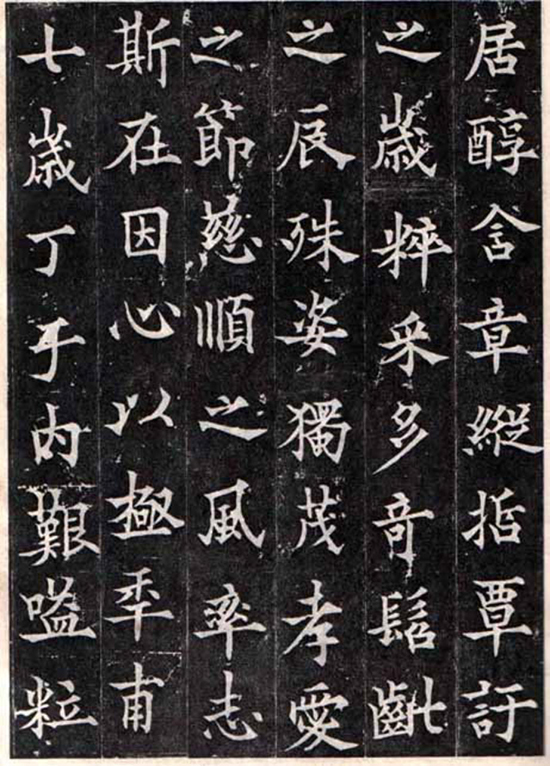 居醇含章縱哲覃訏
之歲粹采多奇髫齔
之辰殊姿獨茂孝愛
之節慈順之風率志
斯在因心以極年甫
七歲丁于內艱嗌粒